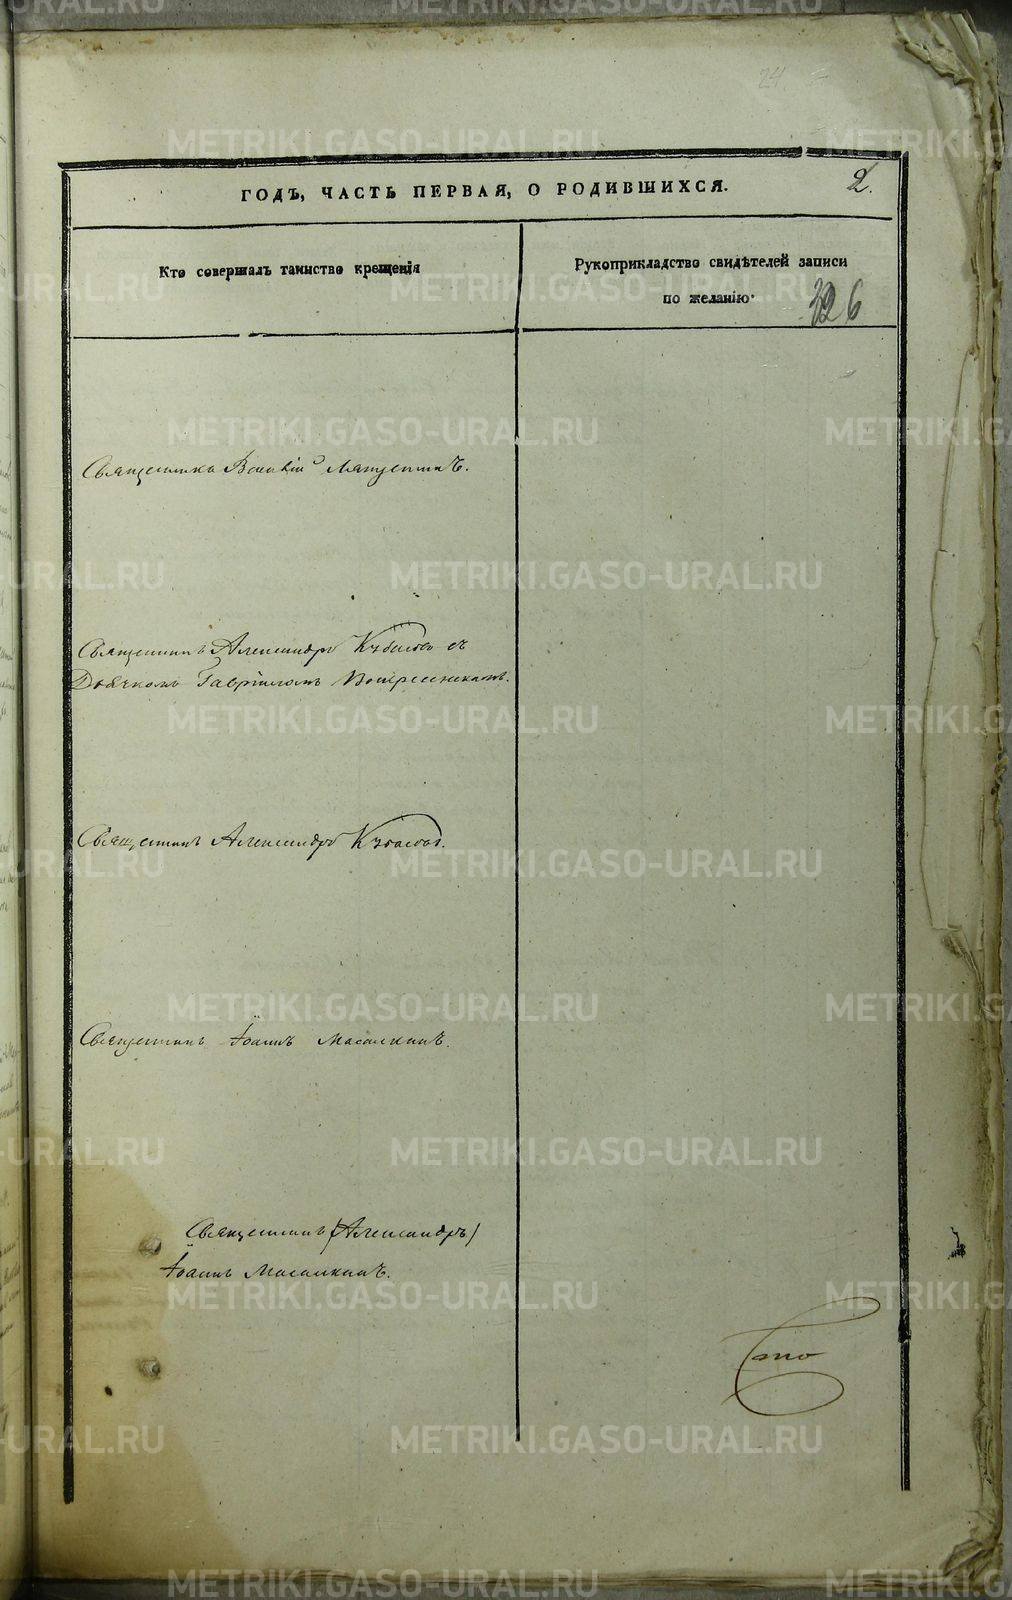 24
ГОДЪ, ЧАСТЬ ПЕРВАЯ, О РОДИВШИХСЯ.
2.
Кто совершалъ таинство крещенія
Рукоприкладство свидѣтелей записи
по желанію.
326
Священникъ
Священникъ Александръ съ
Дьячкомъ Гавріиломъ Воскресенскимъ.
Священникъ Александръ
Священникъ Іоаннъ Масалкинъ.
Священникъ (Александръ)
Іоаннъ Масалкинъ.
METRIKI.GASO-URAL.RU